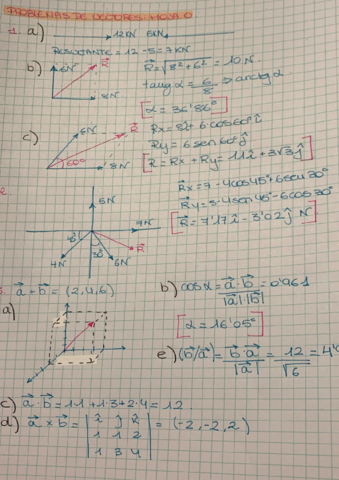 PROBLEMAS DE VECTORES: HOJA 0
1. a) 12KN 5KN
RESULTANTE = 12 - 5 = 7KN
b) 6N R⃗ 8N
R⃗ = √8²+6² = 10N
tang α = 6/8 ⇒ arctg α
[α = 36'86°]
c) 6N R⃗ 60° 8N
Rx = 8î + 6·cos60°î
Ry = 6 sen60°ĵ
[R⃗ = Rx + Ry = 11î + 3√3ĵ]
2. 5N 7N 45° 30° 4N 6N R⃗
R⃗x = 7 - 4cos45° + 6sen30°
R⃗y = 5 - 4sen45° - 6cos30°
[R⃗ = 7'17î - 3'02ĵ N]
3. a⃗ + b⃗ = (2,4,6)
a)
b) cosα = a⃗·b⃗ / |a⃗|·|b⃗| = 0'961
[α = 16'05°]
e) (b⃗/a⃗) = b⃗·a⃗ / |a⃗| = 12 / √6 =
c) a⃗·b⃗ = 1·1 + 1·3 + 2·4 = 12
d) a⃗ x b⃗ = | î ĵ k̂ | = (-2,-2,2)
1 1 2
1 3 4